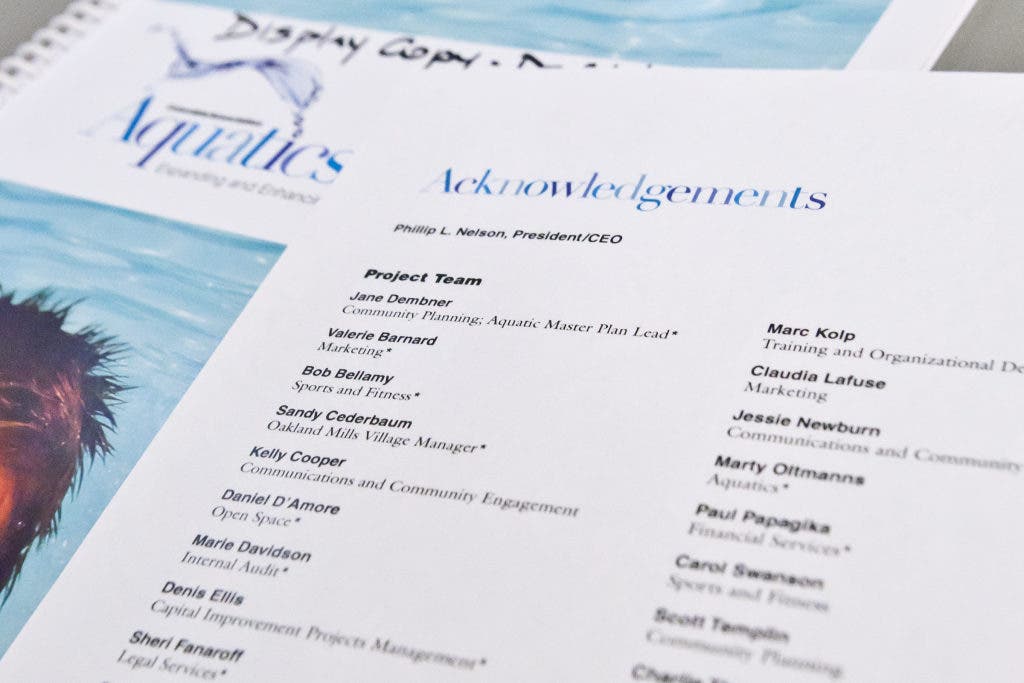 Display Copy
Aquatics
Expanding and Enhanci
Acknowledgements
Phillip L. Nelson, President/CEO
Project Team
Jane Dembner
Community Planning; Aquatic Master Plan Lead*
Valerie Barnard
Marketing*
Bob Bellamy
Sports and Fitness*
Sandy Cederbaum
Oakland Mills Village Manager*
Kelly Cooper
Communications and Community Engagement
Daniel D'Amore
Open Space*
Marie Davidson
Internal Audit*
Denis Ellis
Capital Improvement Projects Management*
Sheri Fanaroff
Legal Services*
Marc Kolp
Training and Organizational De
Claudia Lafuse
Marketing
Jessie Newburn
Communications and Community
Marty Oltmanns
Aquatics*
Paul Papagika
Financial Services*
Carol Swanson
Sports and Fitness
Scott Templin
Community Planning